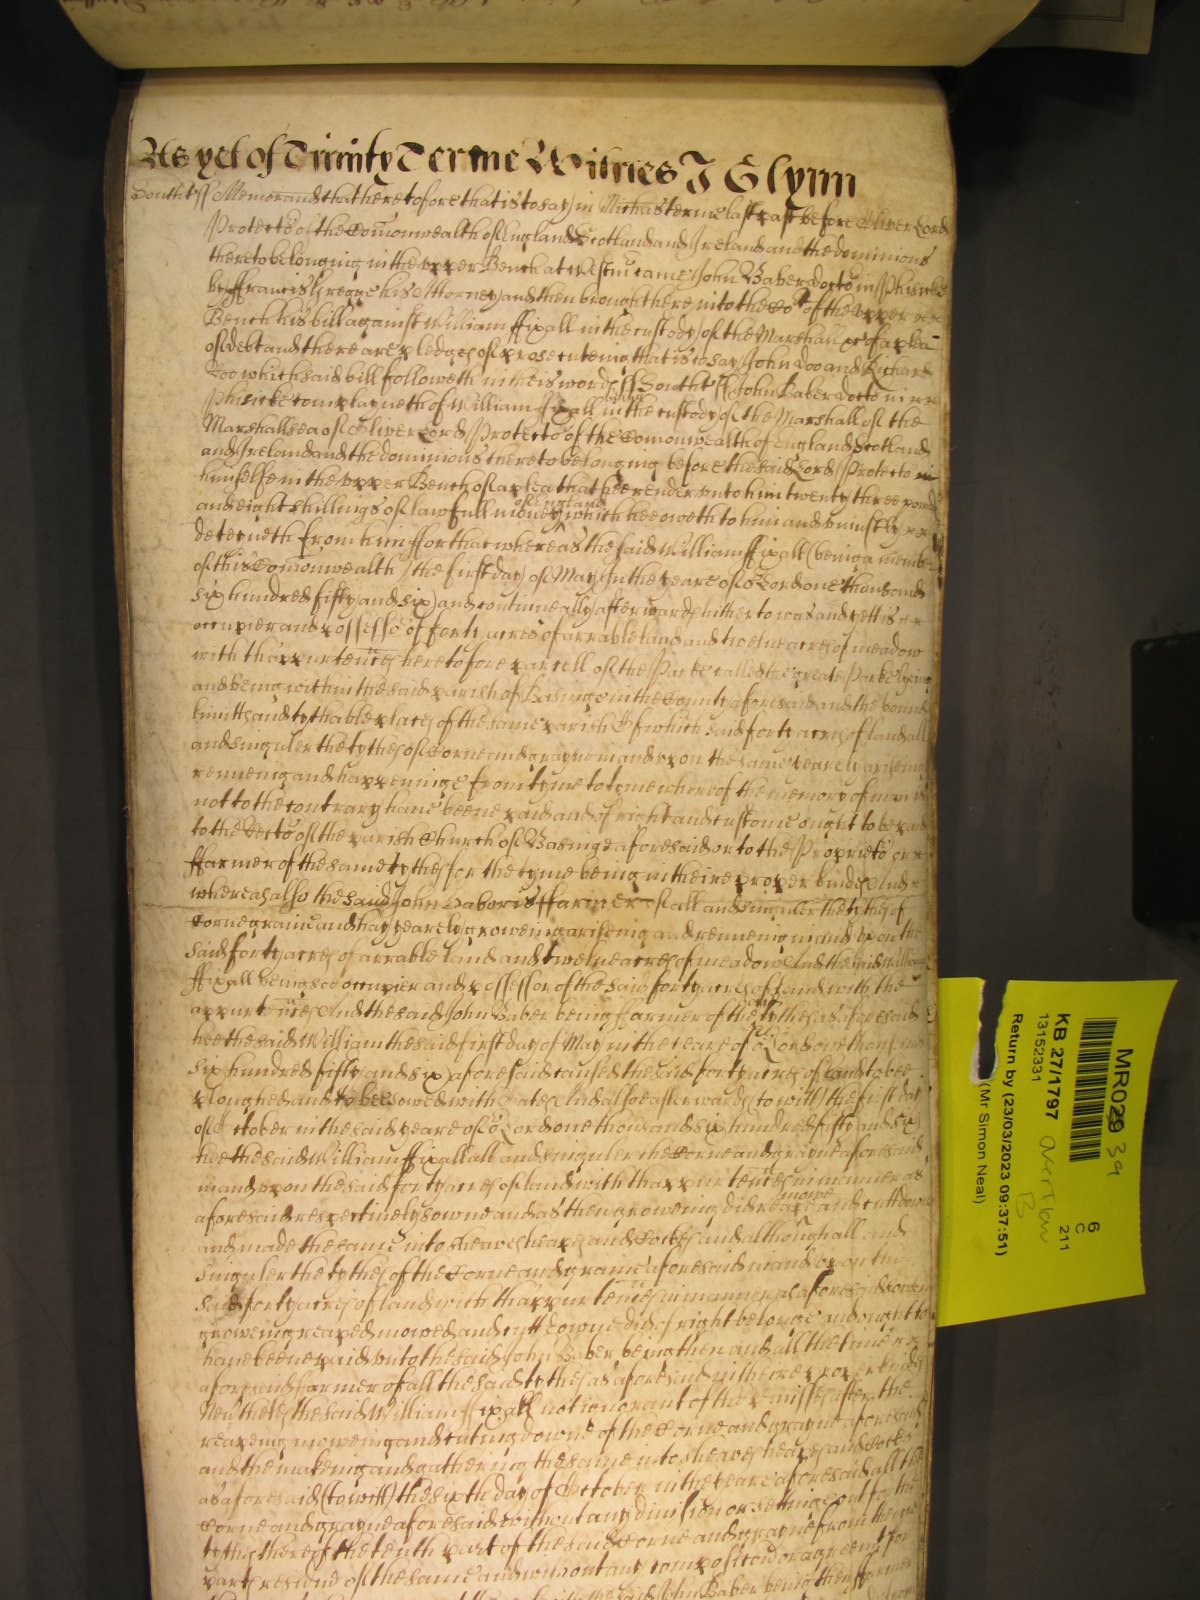 As yet of Trinity Terme Witnes J Glynn
Southt ss Memorand that heretofore that is to say in Michas terme last past before Oliver Lord
Protecto of the Comonwealth of England Scotland and Ireland and the dominions
thereto belonging in the upper Bench at Westm came John Baber Docto in Phisicke
by Francis Gregge his Attorney and then brought here into the Cot of the upper
Bench his bill against William ffixall in the custody of the Marshall &c of a plea
of debt and there are pledges of prosecuteing that is to say John Doo and Richard
Roo which said bill followeth in theis wordes ss Southt ss John Baber Docto in
Phisicke complayneth of William ffixall being in the custody of the Marshall of the
Marshallsea of Oliver Lord Protecto of the Comonwealth of England Scotland
and Ireland and the dominions thereto belonging before the said Lord Protecto
himselfe in the upper Bench of a plea that hee render unto him twenty three pounds
and eight shillings of lawfull money of England which hee oweth to him and uniustly
deteyneth from him ffor that whereas the said William ffixall (being a membe
of this Comonwealth) the first day of May in the yeare of o Lord one thousand
six hundred fifty and six) and continually afterwardes hitherto was and yett is
occupier and possesso of forty acres of arrable land and twelve acres of meadow
with thappurtences heretofore parcell of the Parke called the greate Parke lying
and being within the said parish of Basinge in the County aforesaid and the bound
limitts and tythable places of the same parish Of which said forty acres of land all
and singuler the tythes of Corne and grayne in and upon the same yearely ariseing
renneing and happeninge from tyme to tyme whereof the memory of man is
not to the contrary have beene paid and of right and custome ought to be paid
to the Recto of the parish Church of Basinge aforesaid or to the Proprieto or
ffarmer of the same tythes for the tyme being in theire proper kindes And
whereas also the said John Baber is ffarmer of all and singuler the tythes of
Corne graine and hay yearely groweing ariseing and renneing in and upon the
said forty acres of arrable land and twelve acres of meadow And the said William
ffixall being soe occupier and possessor of the said forty acres of land with the
appurtences And the said John Baber being ffarmer of the tythes as aforesaid
hee the said William the said first day of May in the yeare of o Lord one thousand
six hundred fifty and six) aforesaid caused the said forty acres of land to bee
ploughed and to bee sowed with Oates And also afterwards (to witt) the first day
of October in the said yeare of o Lord one thousand six hundred fifty and six
hee the said William ffixall all and singuler the Corne and grayne aforesaid
in and upon the said forty acres of land with thappurtences in manner as
aforesaid respectively sowne and as then groweing did reape mowe and cutt downe
and made the same into sheaves heapes and Cockes and although all and
singuler the tythes of the Corne and graine aforesaid in and upon the
said forty acres of land with thappurtences in manner as aforesaid sowen
groweing reaped mowed and cutt downe did of right belonge and ought to
have beene paid unto the said John Baber being then and all the time
aforesaid farmer of all the said tythes as aforesaid in theire proper kindes
Nevtheles the said William ffixall not ignorant of the pmisses after the
reapeing moweing and cutting downe of the Corne and grayne aforesaid
and the makeing and gathering the same into sheaves heapes and Cockes
as aforesaid (to witt) the sixth day of October in the yeare aforesaid all the
Corne and grayne aforesaid without any division or setting out for the
tythe thereof the tenth part of the said Corne and grayne from the nyne
partes residue of the same and without any composicon or agreemt for
the said John Baber being then farmer
MR029 39
KB 27/1797
13152331
Return by (23/03/2023 09:37:51)
(Mr Simon Neal)
6
C
211